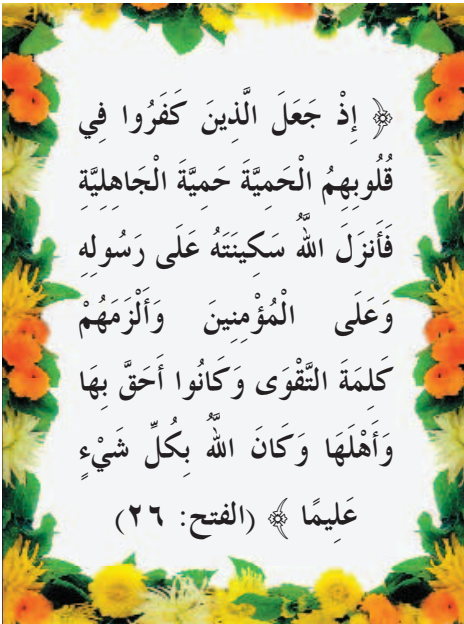 ﴿ إِذْ جَعَلَ الَّذِينَ كَفَرُوا فِي
قُلُوبِهِمُ الْحَمِيَّةَ حَمِيَّةَ الْجَاهِلِيَّةِ
فَأَنزَلَ اللَّهُ سَكِينَتَهُ عَلَى رَسُولِهِ
وَعَلَى الْمُؤْمِنِينَ وَأَلْزَمَهُمْ
كَلِمَةَ التَّقْوَى وَكَانُوا أَحَقَّ بِهَا
وَأَهْلَهَا وَكَانَ اللَّهُ بِكُلِّ شَيْءٍ
عَلِيمًا ﴾ (الفتح: ٢٦)